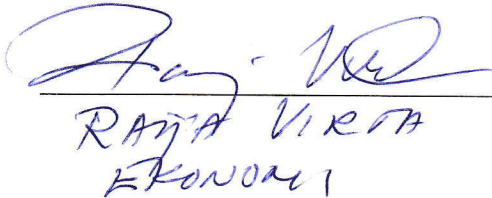 RAIJA VIRTA
EKONOMI